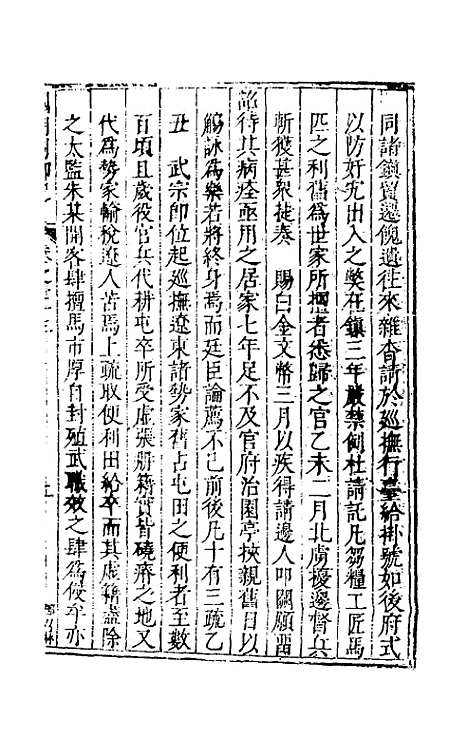 同諸鎮貿遷餽遺往來雜沓請於巡撫行臺給掛號如後府式
以防奸宄出入之獘在鎮三年嚴禁侵杜請託凡芻糧工匠馬
匹之利舊為世家所擅者悉歸之官乙未二月北虜擾邊督兵
斬獲甚衆捷奏　賜白金文幣三月以疾得請邊人叩關願留
詔待其病痊亟用之居家七年足不及官府治園亭挾親舊日以
觴詠為樂若將終身焉而廷臣論薦不已前後凡十有三疏乙
丑　武宗即位起巡撫遼東諸勢家舊占屯田之便利者至數
百頃且歲役官兵代耕屯卒所受虛張冊籍實皆磽瘠之地又
代為勢家輸稅遼人苦焉上疏取便利田給卒而其虛籍盡除
之太監朱某開客肆擅馬市厚自封殖武職效之肆為侵牟亦